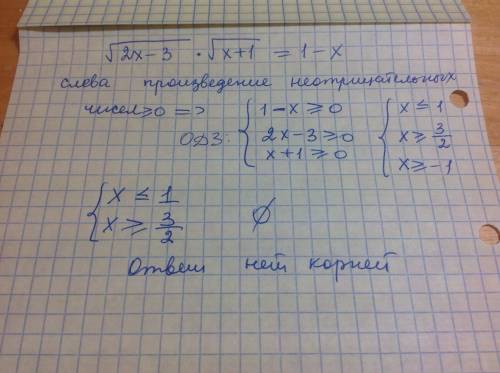 √2x-3 · √x+1 = 1-x
слева произведение неотрицательных
чисел ≥0 =>
ОДЗ: { 1-x ≥ 0 { x ≤ 1
2x-3 ≥ 0 x ≥ 3/2
x+1 ≥ 0 x ≥ -1
{ x ≤ 1
x ≥ 3/2 ∅
Ответ нет корней